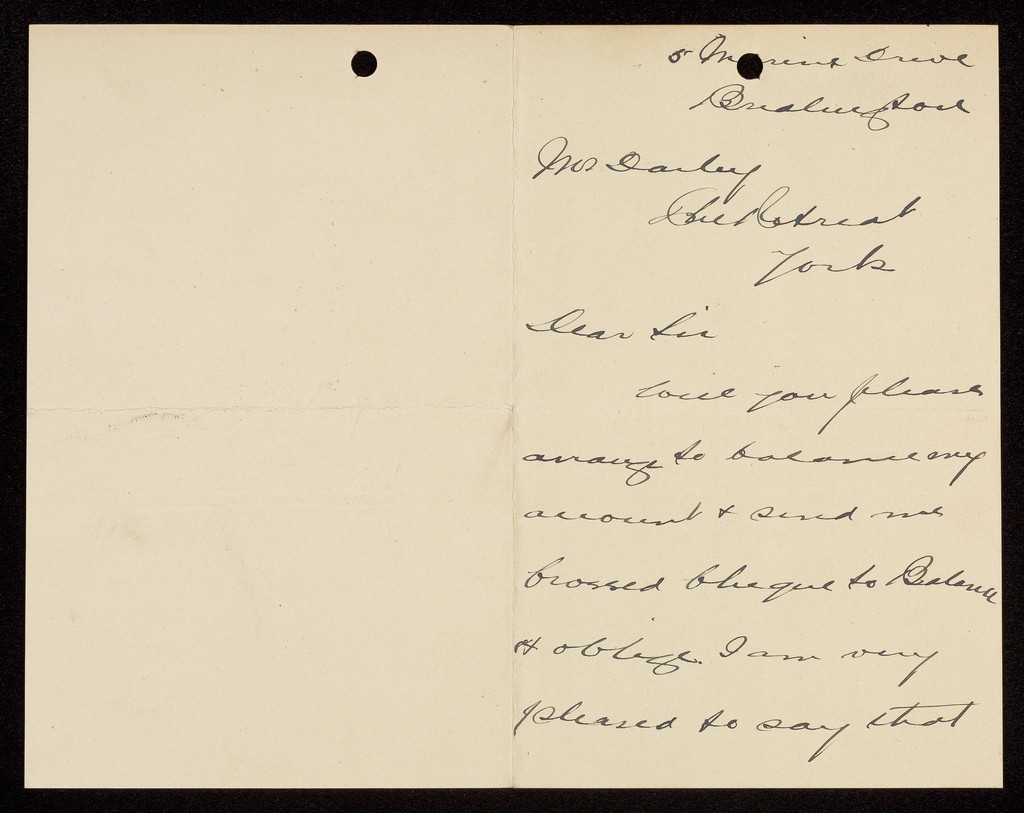 5 Marine Drive
Bridlington
Mr Darley
The Retreat
York
Dear Sir
Will you please
arrange to balance my
account & send me
Crossed Cheque to Balance
& oblige. I am very
pleased to say that